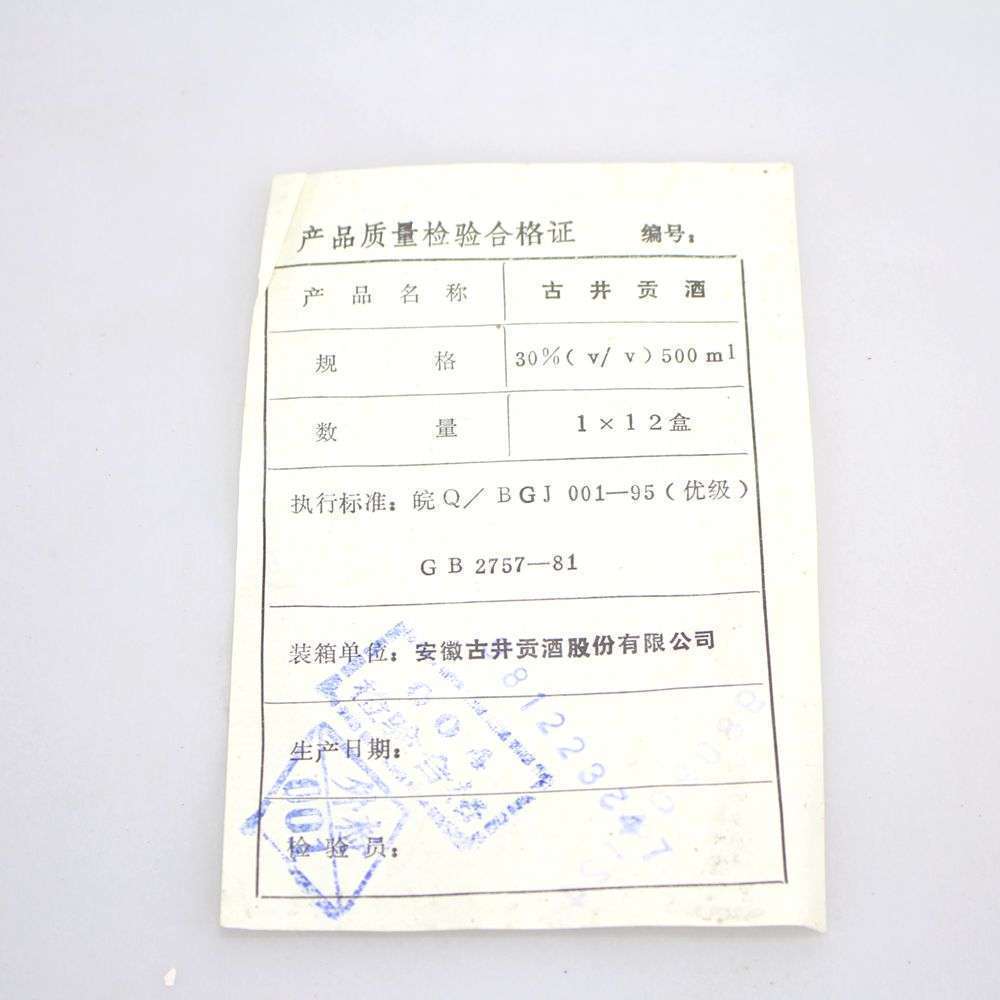 产品质量检验合格证 编号:
产品名称 古井贡酒
规格 30%(v/v)500ml
数量 1×12盒
执行标准: 皖Q/BGJ 001—95(优级)
GB 2757—81
装箱单位: 安徽古井贡酒股份有限公司
004
检验合格
生产日期:
001
检验员: